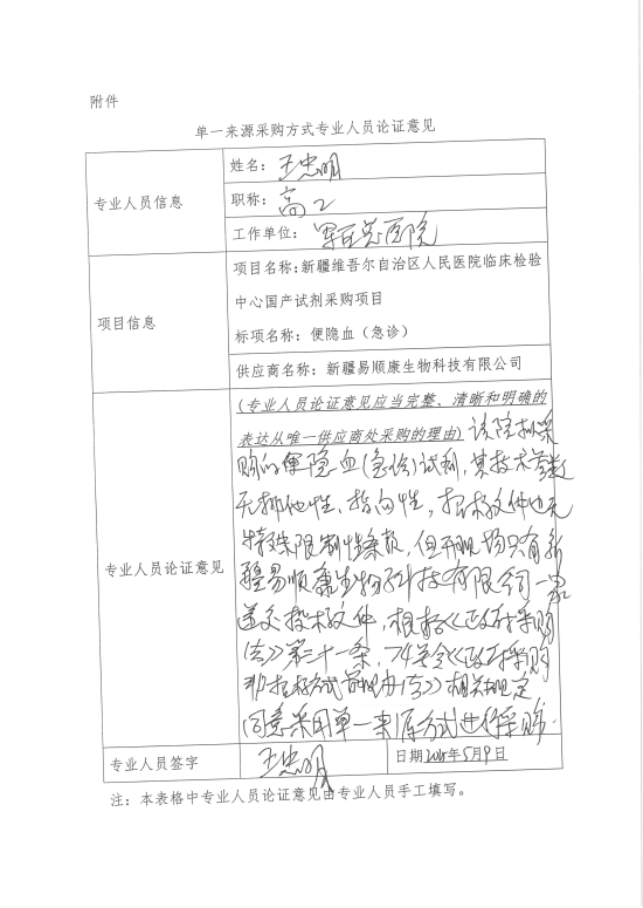 附件
单一来源采购方式专业人员论证意见
专业人员信息
姓名：王忠明
职称：高工
工作单位：军区总医院
项目信息
项目名称：新疆维吾尔自治区人民医院临床检验
中心国产试剂采购项目
标项名称：便隐血（急诊）
供应商名称：新疆易顺康生物科技有限公司
专业人员论证意见
(专业人员论证意见应当完整、清晰和明确的
表达从唯一供应商处采购的理由) 该院拟采
购的便隐血(急诊)试剂，其技术参数
无排他性、指向性，招标文件也无
特殊限制性条款，但开标现场只有新
疆易顺康生物科技有限公司一家
递交投标文件，根据《政府采购
法》第三十一条，74号令《政府采购
非招标方式管理办法》相关规定
同意采用单一来源方式进行采购.
专业人员签字
王忠明
日期 年5月9日
注：本表格中专业人员论证意见由专业人员手工填写。